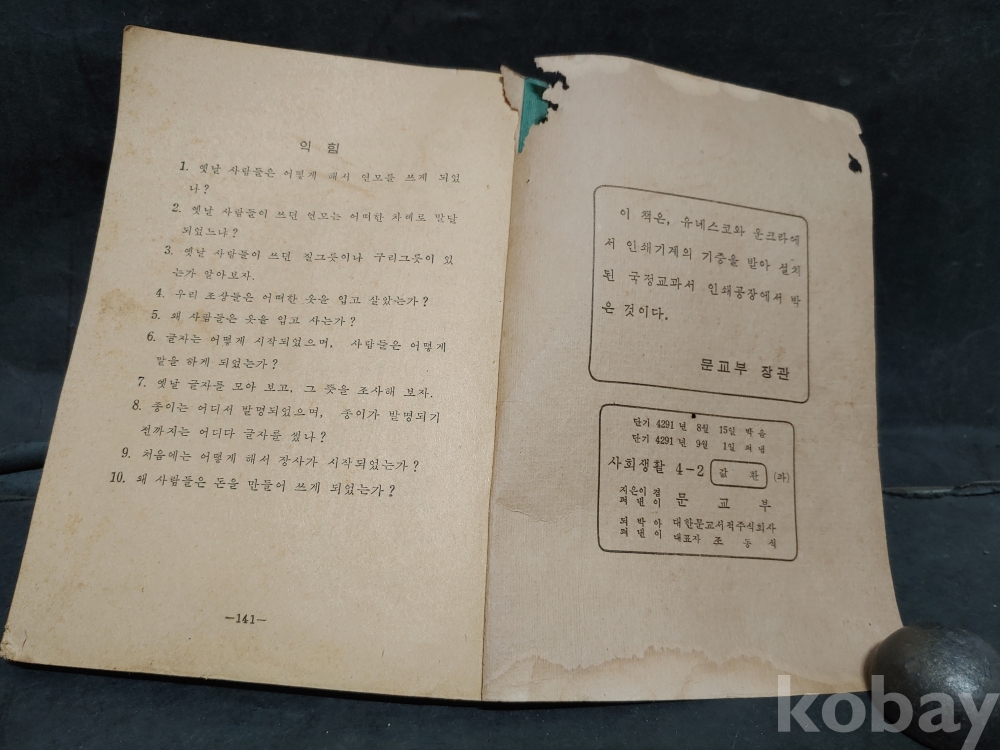 익 힘
1. 옛날 사람들은 어떻게 해서 연모를 쓰게 되었
나?
2. 옛날 사람들이 쓰던 연모는 어떠한 차례로 발달
되었느냐?
3. 옛날 사람들이 쓰던 질그릇이나 구리그릇이 있
는가 알아보자.
4. 우리 조상들은 어떠한 옷을 입고 살았는가?
5. 왜 사람들은 옷을 입고 사는가?
6. 글자는 어떻게 시작되었으며, 사람들은 어떻게
말을 하게 되었는가?
7. 옛날 글자를 모아 보고, 그 뜻을 조사해 보자.
8. 종이는 어디서 발명되었으며, 종이가 발명되기
전까지는 어디다 글자를 썼나?
9. 처음에는 어떻게 해서 장사가 시작되었는가?
10. 왜 사람들은 돈을 만들어 쓰게 되었는가?
—141—
이 책은, 유네스코와 운크라에
서 인쇄기계의 기증을 받아 설치
된 국정교과서 인쇄공장에서 박
은 것이다.
문교부 장관
단기 4291년 8월 15일 박음
단기 4291년 9월 1일 펴냄
사회생활 4-2 값 환
지은이 겸
펴낸이 문교부
되박아
펴낸이 대한문교서적주식회사
대표자 조동식
kobay